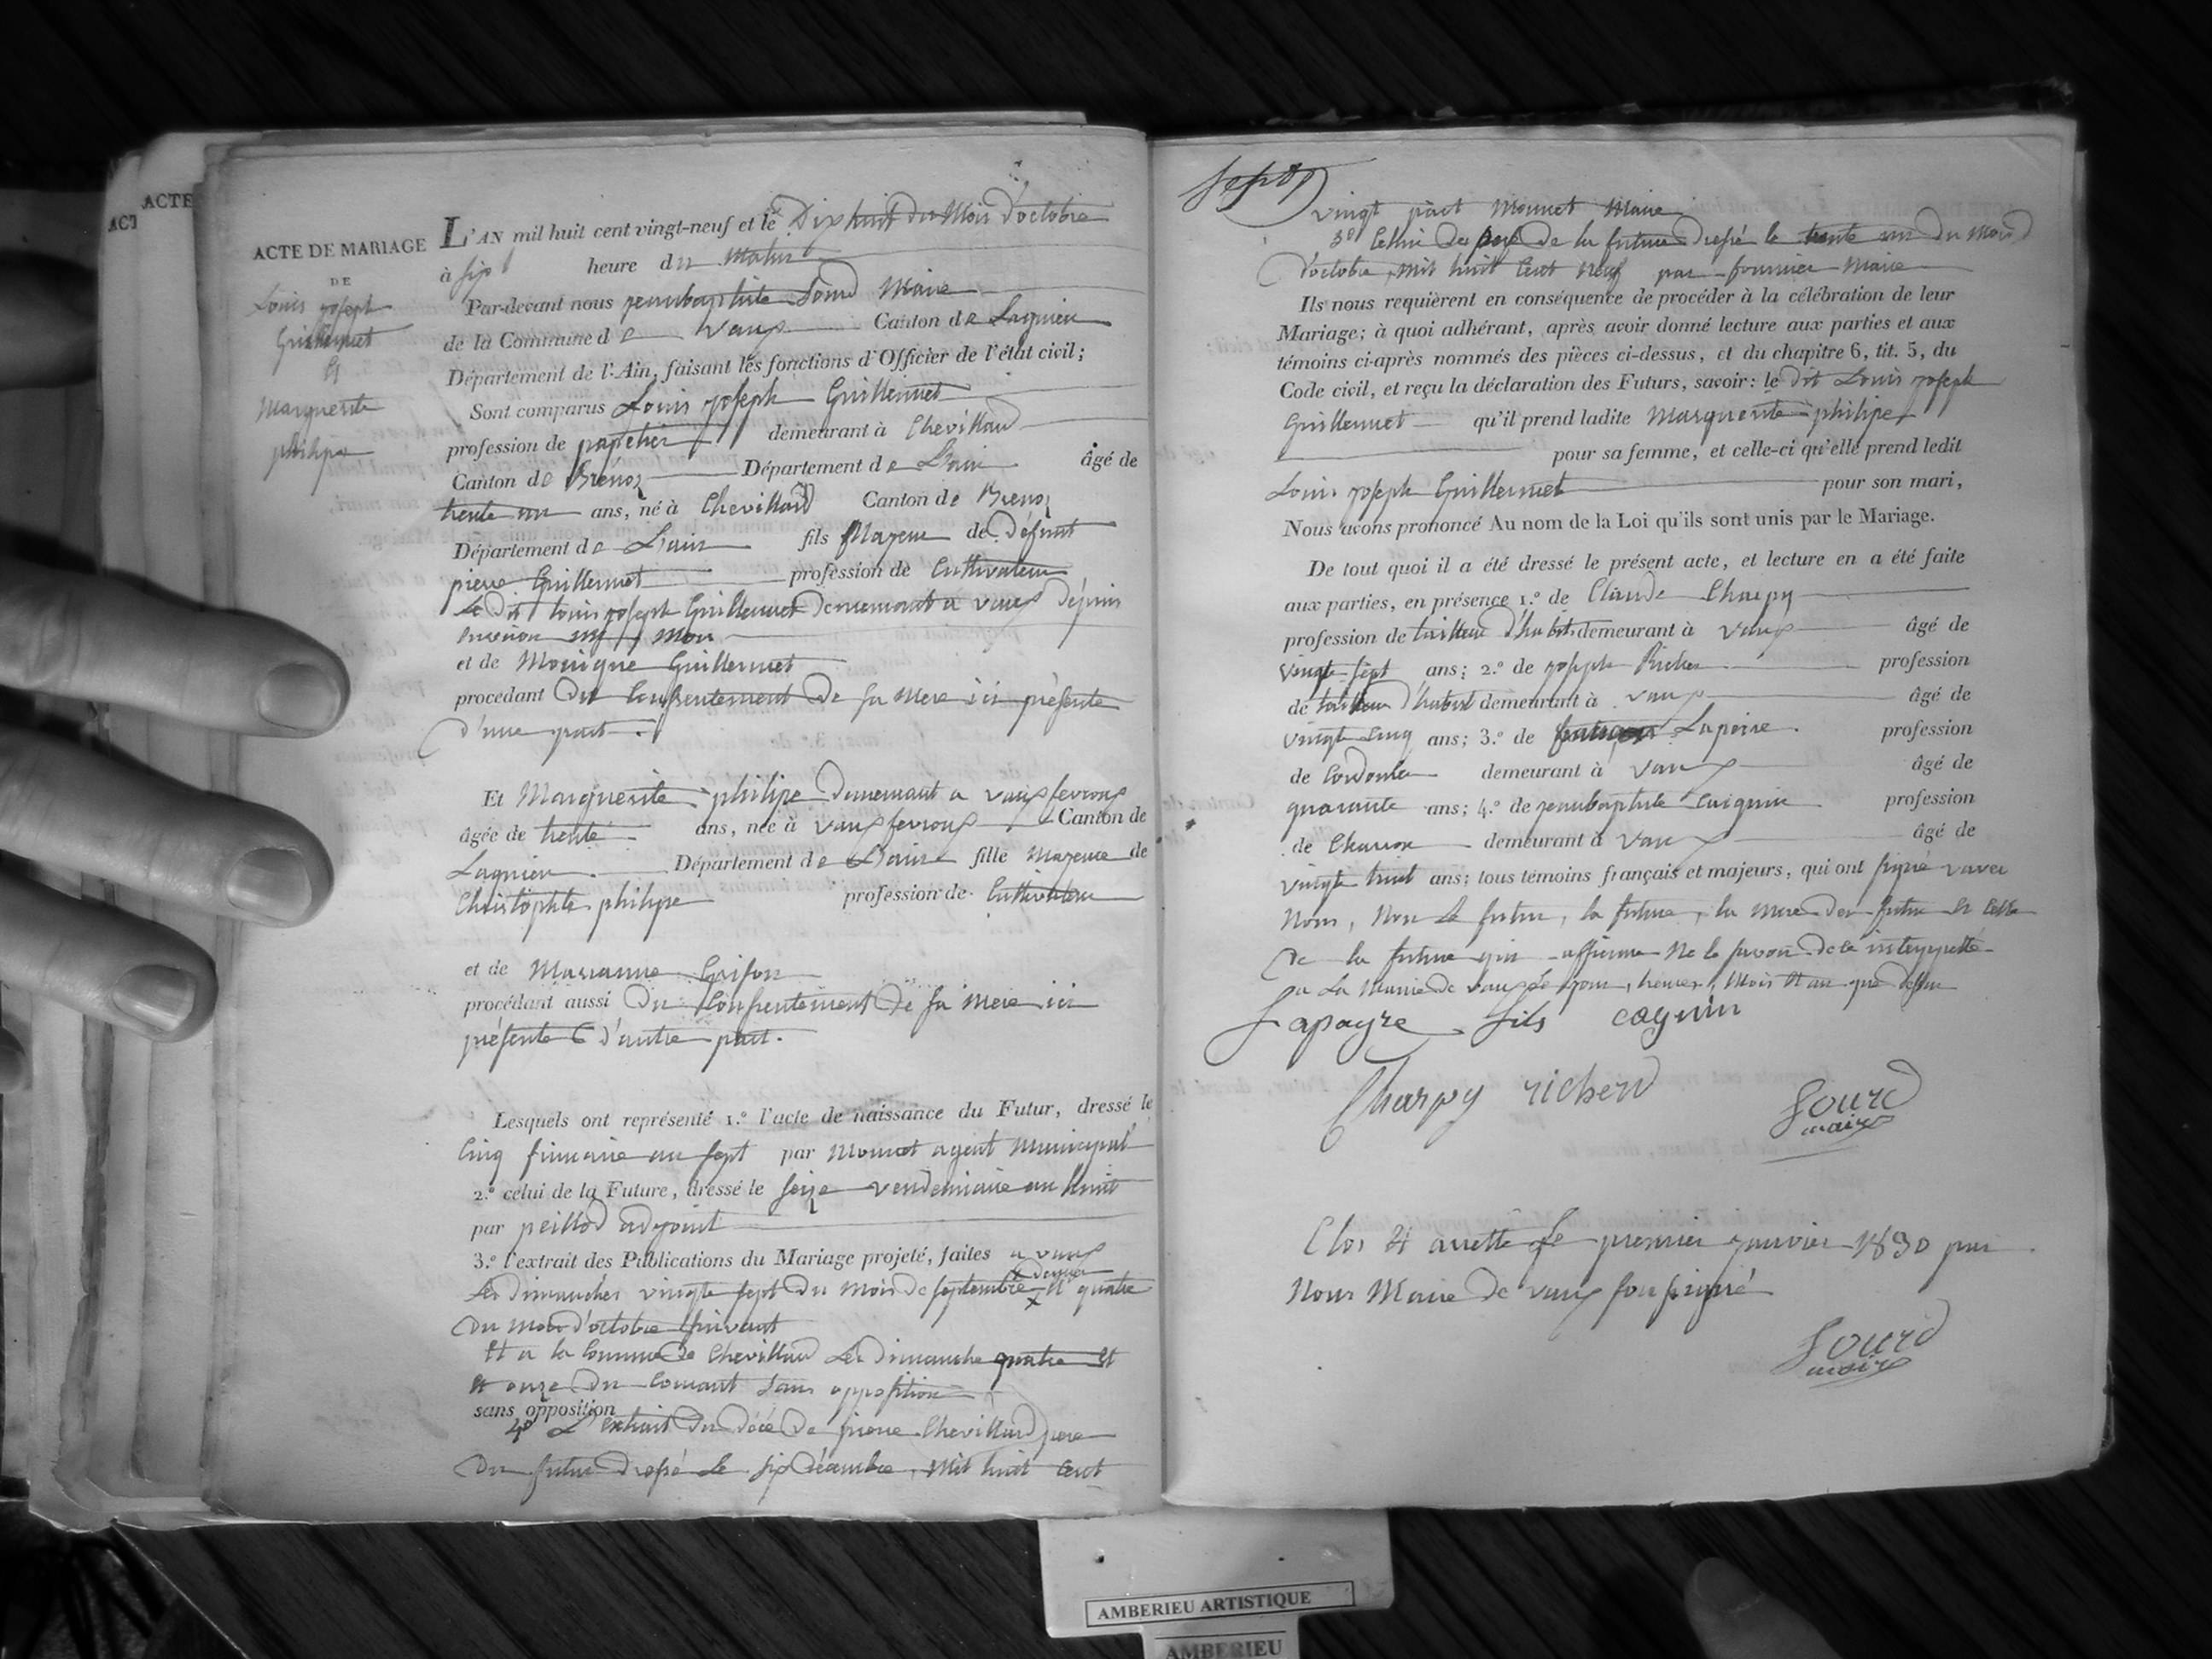 ACTE
ACT
ACTE DE MARIAGE
DE
Louis joseph
Guillermet
Et
Marguerite
philipe
L'AN mil huit cent vingt-neuf et le Dix huit du Mois d'octobre
à six heure du Matin
Par-devant nous jeanbaptiste Sourd Maire
de la Commune de Vaux Canton de Lagnieu
Département de l'Ain, faisant les fonctions d'Officier de l'état civil;
Sont comparus Louis joseph Guillermet
profession de demeurant à Chevillard
Canton de Brenoz Département de L'ain âgé de
trente un ans, né à Chevillard Canton de Brenoz
Département de L'ain fils Majeur de Defunt
pierre Guillermet profession de Cultivateur
Le dit louis joseph Guillermet demeurant a vaux depuis
environ mois
et de Monique Guillermet
procédant Du Consentement de sa Mere ici présente
D'une part.
Et Marguerite philipe demeurant a vaux fevroux
âgée de trente ans, née à vaux fevroux Canton de
Lagnieu Département de L'ain fille Majeure de
Christophle philipe profession de Cultivateur
et de Marianne Grifon
procédant aussi Du Consentement de sa Mere ici
présente d'autre part.
Lesquels ont représenté 1.° l'acte de naissance du Futur, dressé le
Cinq frimaire an sept par Monnet agent Municipal
2.° celui de la Future, dressé le seize vendemiaire an huit
par peillod adjoint
3.° l'extrait des Publications du Mariage projeté, faites a vaux
Les dimanches vingt sept du mois de septembre dernier et quatre
du mois d'octobre suivant
Et a la Commune de Chevillard les dimanche quatre Et
Et onze du Courant sans opposition
sans opposition
4° L'extrait du décé de pierre Chevillard pere
du futur dressé le six décembre, Mil huit Cent
vingt Monnet Maire
5° Celui du pere de la future dressé le trente un du Mois
d'octobre, mil huit Cent neuf par fournier Maire
Ils nous requièrent en conséquence de procéder à la célébration de leur
Mariage; à quoi adhérant, après avoir donné lecture aux parties et aux
témoins ci-après nommés des pièces ci-dessus, et du chapitre 6, tit. 5, du
Code civil, et reçu la déclaration des Futurs, savoir: le dit Louis joseph
Guillermet qu'il prend ladite Marguerite philipe
pour sa femme, et celle-ci qu'elle prend ledit
Louis joseph Guillermet pour son mari,
Nous avons prononcé Au nom de la Loi qu'ils sont unis par le Mariage.
De tout quoi il a été dressé le présent acte, et lecture en a été faite
aux parties, en présence 1.° de Claude Charpy
profession de tailleur d'habits demeurant à vaux âgé de
vingt sept ans; 2.° de joseph Richer profession
de tailleur d'habit demeurant à vaux âgé de
vingt cinq ans; 3.° de Lapeire profession
de Cordonier demeurant à vaux âgé de
quarante ans; 4.° de jeanbaptiste Cuignin profession
de Charron demeurant à vaux âgé de
vingt huit ans; tous témoins français et majeurs, qui ont signé avec
Nous, Non le futur, la future, la mere du futur et celle
de la future qui affirme ne le savoir de ce
a La Mairie de vaux le jour, heure, Mois Et an que dessus
Lapayre fils coynin
Charpy richerd Sourd
maire
Clos Et arretté Le premier janvier 1830 par
Nous Maire de vaux soussigné
Sourd
maire
AMBERIEU ARTISTIQUE
AMBERIEU